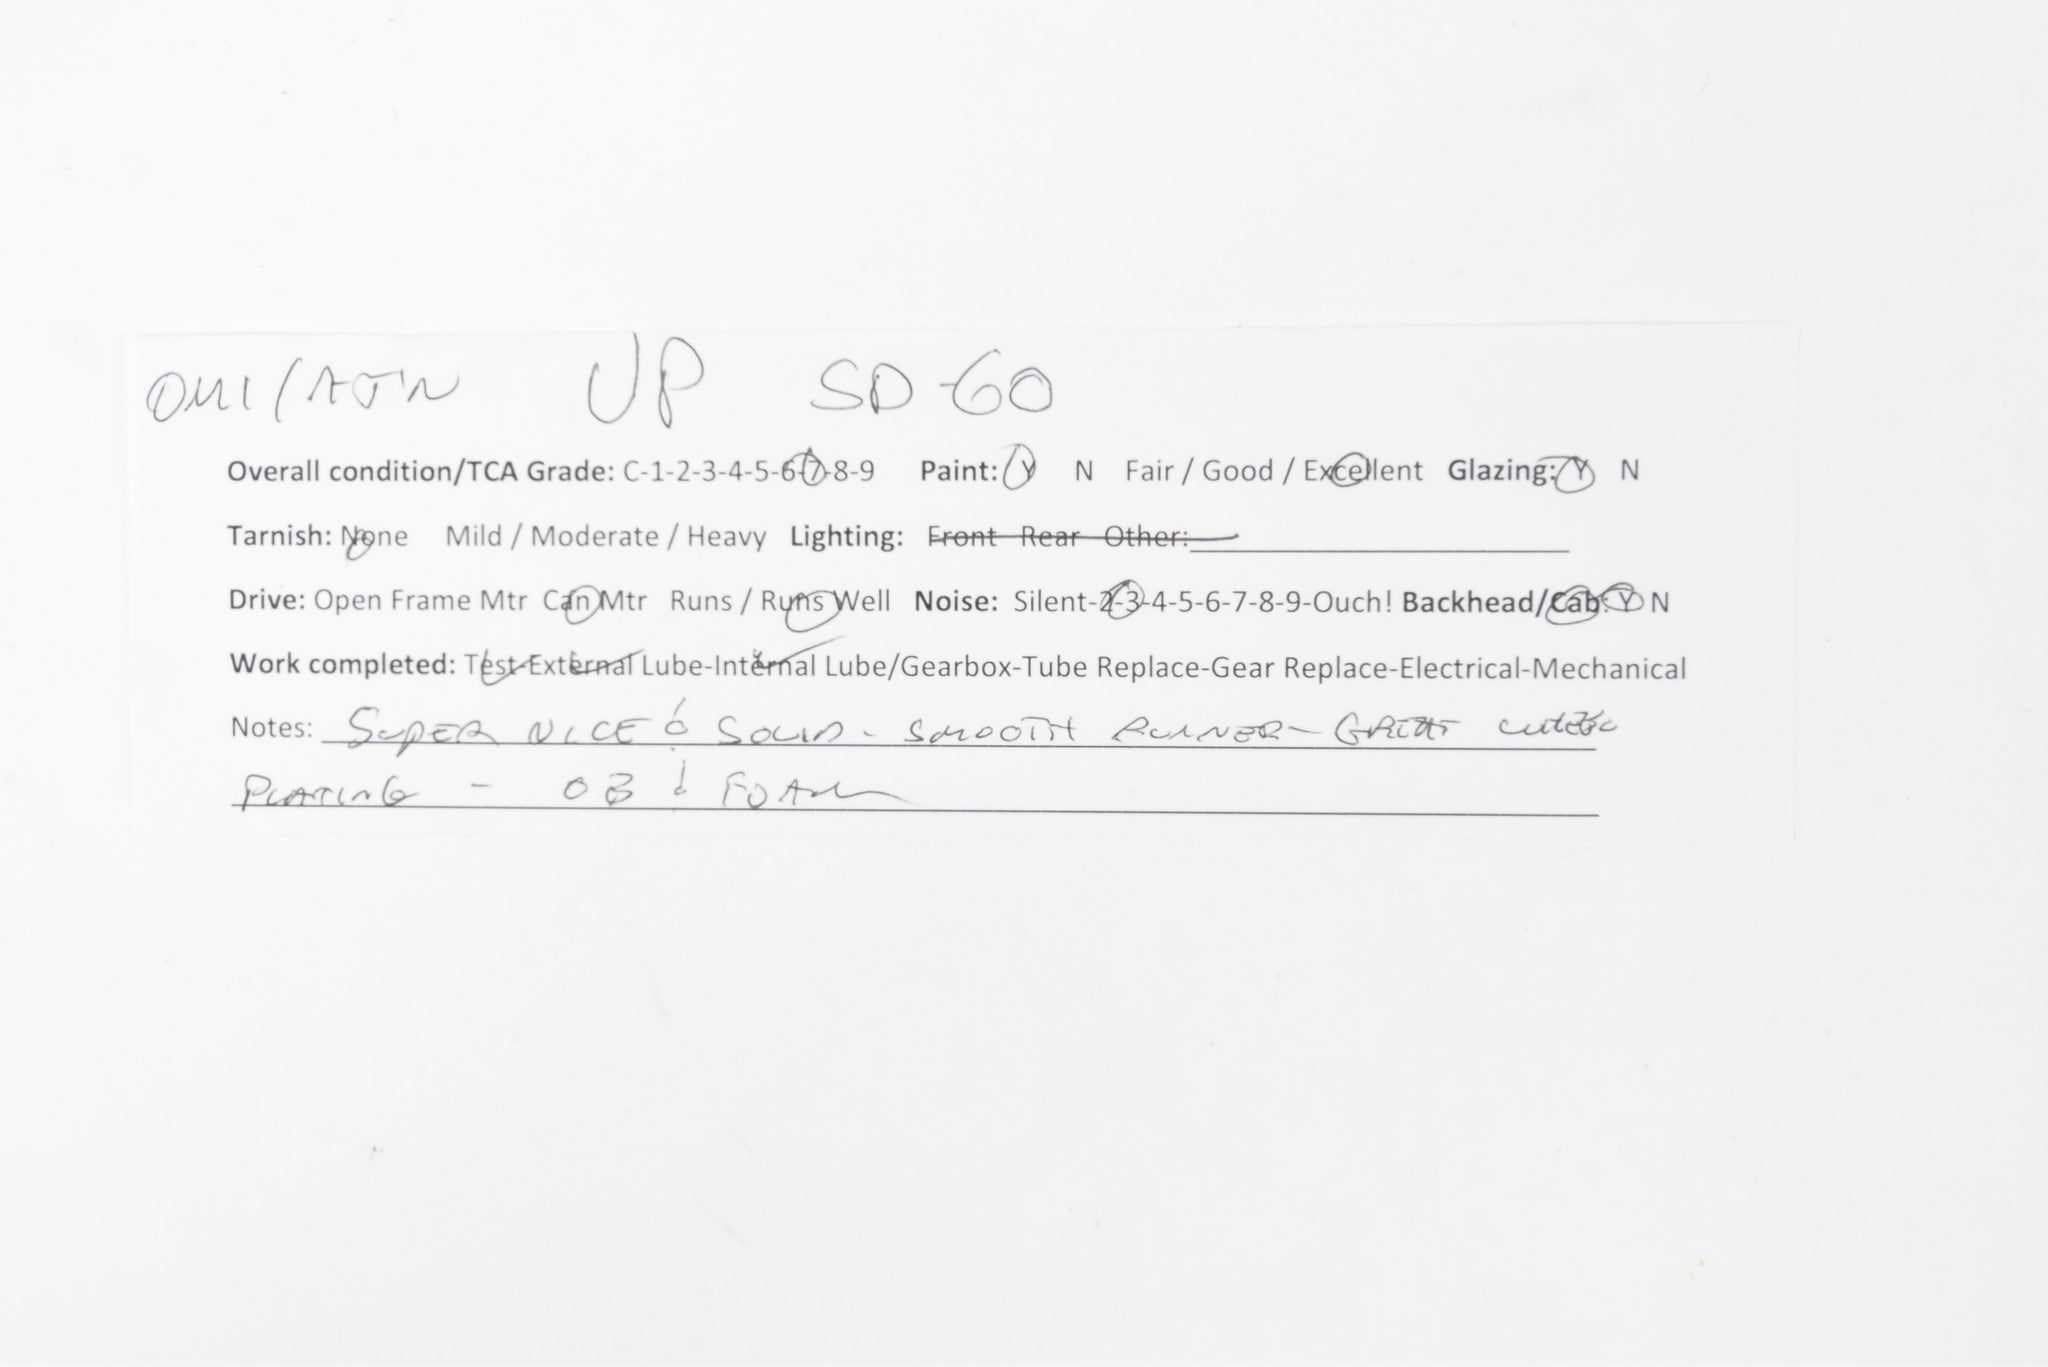 OMI/AJIN UP SD-60
Overall condition/TCA Grade: C-1-2-3-4-5-6-7-8-9 Paint: Y N Fair / Good / Excellent Glazing: Y N
Tarnish: None Mild / Moderate / Heavy Lighting: Front Rear Other:
Drive: Open Frame Mtr Can Mtr Runs / Runs Well Noise: Silent-2-3-4-5-6-7-8-9-Ouch! Backhead/Cab: Y N
Work completed: Test-External Lube-Internal Lube/Gearbox-Tube Replace-Gear Replace-Electrical-Mechanical
Notes: SUPER NICE & SOLID - SMOOTH RUNNER - GREAT
PLATING - OB & FOAM